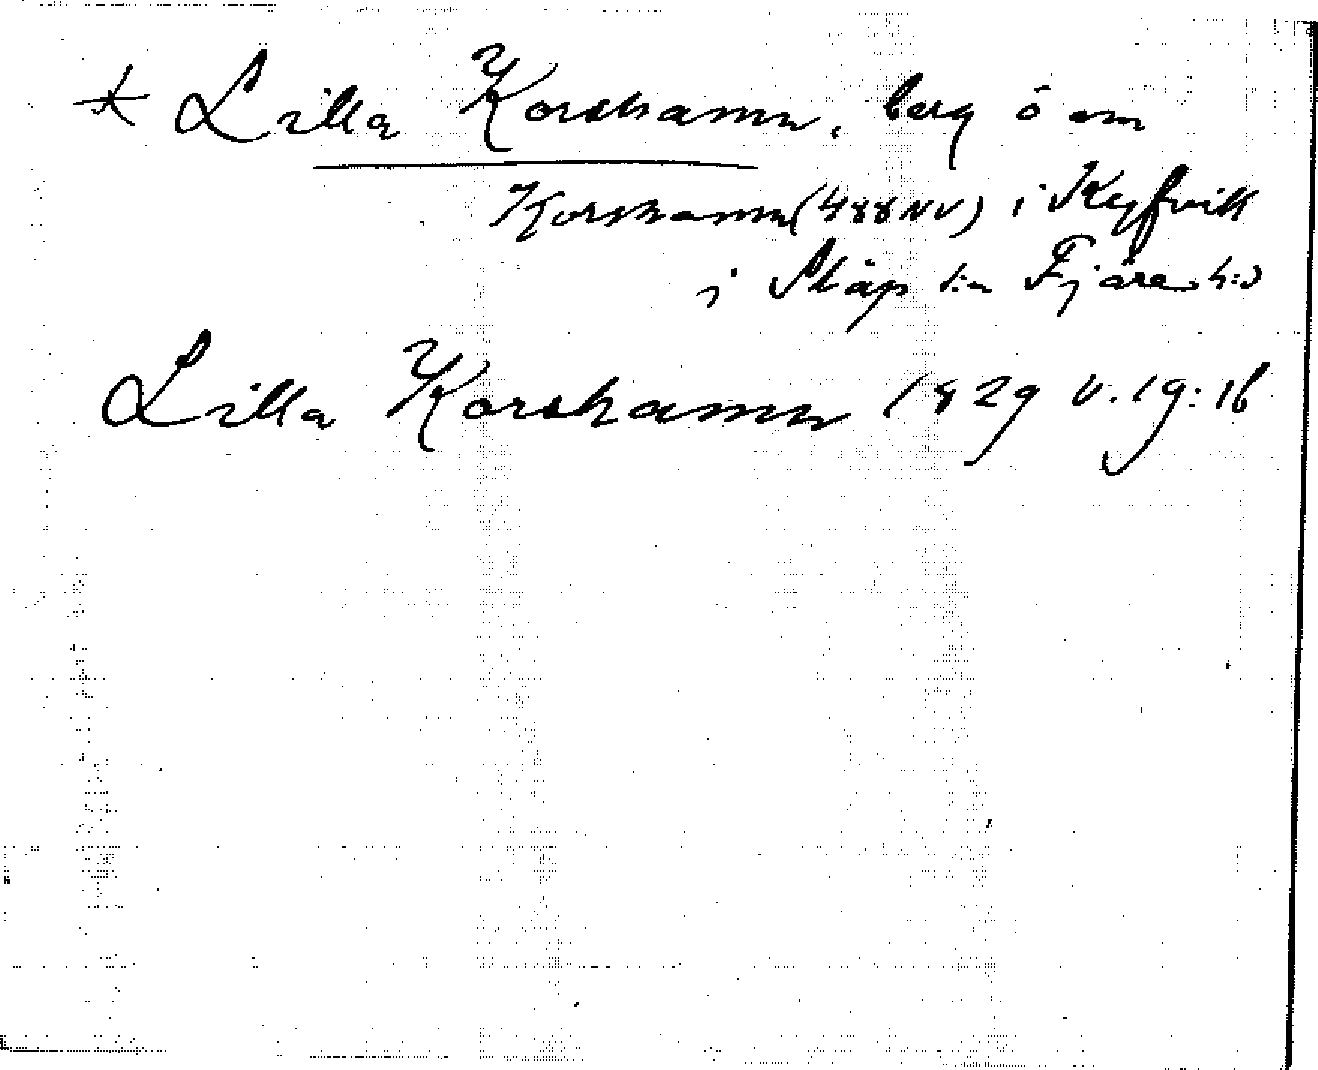 * Lilla Korshamn, berg ö om
Korshamn (488 NV) i Kyfvik
i Släp sn Fjäre hd
Lilla Korshamn 1829 V. 19:16